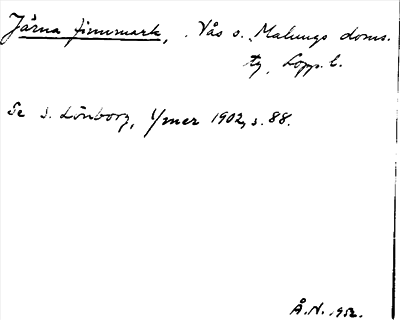 Järna finnmark, . Nås o. Malungs doms.
tg, Kopp. l.
Se S. Lönborg, Ymer 1902, s. 88.
Å.N. 1952.